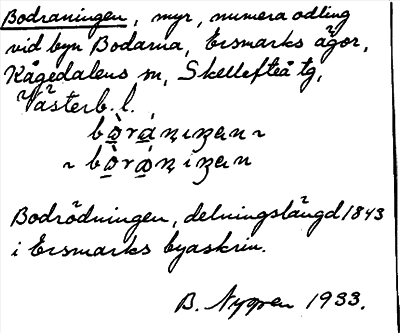 Bodraningen, myr, numera odling
vid byn Bodarna, Ersmarks ägor,
Kågedalens sn, Skellefteå tg,
Västerb. l.
bò̱rá̱nıŋən ~
~ bò̱rò̱nıŋən
Bodrödningen, delningslängd 1843
i Ersmarks byaskrin.
B. Nygren 1933.